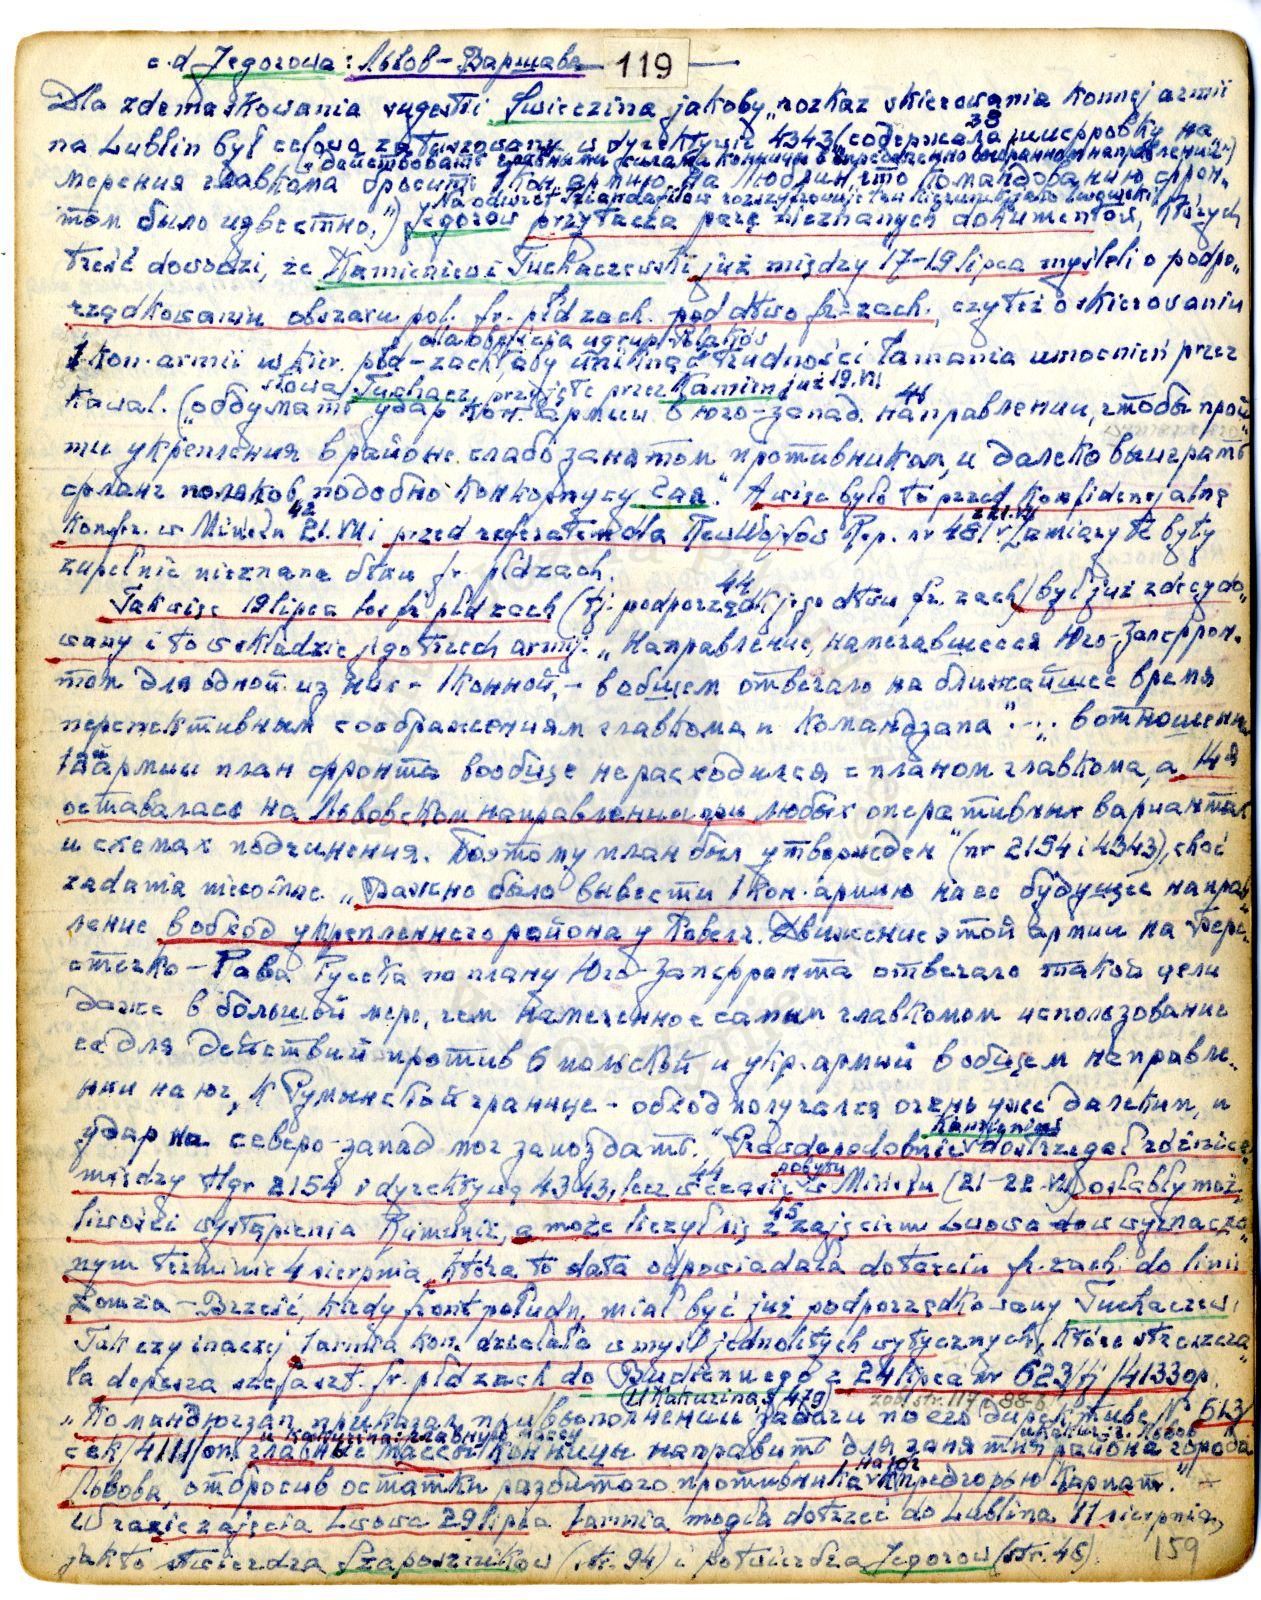 c.d Jegorowa: Львов–Варшава — 119 —
Dla zdemaskowania sugestii Świeczina jakoby „rozkaz skierowania konnej armii
38
na Lublin był celowo zatuszowany w dyrektywie 4343 (содержала шифровку на
(„действовать главными силами конницы в определенно выбранном направлении")
мерения главкома бросить 1 Кон. армию на Люблин, что командованию фрон„
том было известно,") Jegorow przytacza parę nieznanych dokumentów, których
treść dowodzi, że Kamieniew i Tuchaczewski już między 17–19 lipca myśleli o podpo„
rządkowaniu obszaru pol. fr. płd zach. pod dtwo fr-zach., czyli o skierowaniu
dla obejścia ugrup. Polaków
1 kon. armii w kier. płd-zach, aby uniknąć trudności łamania umocnień przez
słowa Tuchacz. przyjęte przez Kamien. już 19.VII
kawal. („обдумать удар Кон. армии в юго-запад. направлении, чтобы прой„
41
ти укрепления в районе слабо занятом противником, и далеко выиграть
фланг поляков, подобно конкорпусу Гая." A więc było to przed konfidencjalną
42
konfer. w Mińsku 21.VII i przed referatem dla RewWojSow Rep. nr 481 Zamiary te były
z 21.VII
zupełnie nieznane dtwu fr. płd zach.
44
Tak więc 19 lipca los fr. płd zach (tj. podporządk. jego dtwu fr. zach) był już zdecydo„
wany i to w składzie jego trzech armij. „Направление, намечавшееся Юго-Запфрон„
том для одной из них – 1 Конной, – в общем отвечало на ближайшее время
перспективным соображениям главкома и командзапа" ... „в отношении
12ой армии план фронта вообще не расходился с планом главкома, а 14я
оставалась на Львовском направлении при любых оперативных вариантах
и схемах подчинения. Поэтому план был утвержден" (nr 2154 i 4343), choć
zadania nieco inne. „Важно было вывести 1 Кон. армию на ее будущее направ„
ление в обход укрепленного района у Ковеля. Движение этой армии на Бере„
стечко – Рава Русска по плану Юго-Запфронта отвечало такой цели
даже в большей мере, чем намеченное самим главкомом использование
ее для действий против 6 польской и укр. армий в общем направле„
нии на юг, к Румынской границе – обход получался очень уже далеким, и
удар на северо-запад мог запоздать." Prawdopodobnie Kamieniew dostrzegał różnicę
między 2154 i dyrektywą 4343, lecz w czasie pobytu w Mińsku (21–22.VII) osłabły moż„
44
liwości wystąpienia Rumunii, a może liczył się z zajęciem Lwowa w wyznaczo„
45
nym terminie 4 sierpnia, która to data odpowiadała dotarciu fr. zach. do linii
Łomża – Brześć, kiedy front połudn. miał być już podporządkowany Tuchaczew.
Tak czy inaczej 1 armia kon. działała w myśl jednolitych wytycznych, które streszcza„
ła depesza szefa szt. fr. płd zach do Budiennego z 24 lipca nr 623/tj/4133 op.
(U Kakurina s 479) zob. str. 117
„Командюгзап приказал при выполнении задачи по его директиве № 513/
сек/4111/оп. главные массы конницы направить для занятия района города
u Kakurina: главную массу
Львова, отбросив остатки разбитого противника на юг к предгорью Карпат."
W razie zajęcia Lwowa 29 lipca 1 armia mogła dotrzeć do Lublina 11 sierpnia,
jak to stwierdza Szaposznikow (str. 94) i potwierdza Jegorow (str. 45)
159